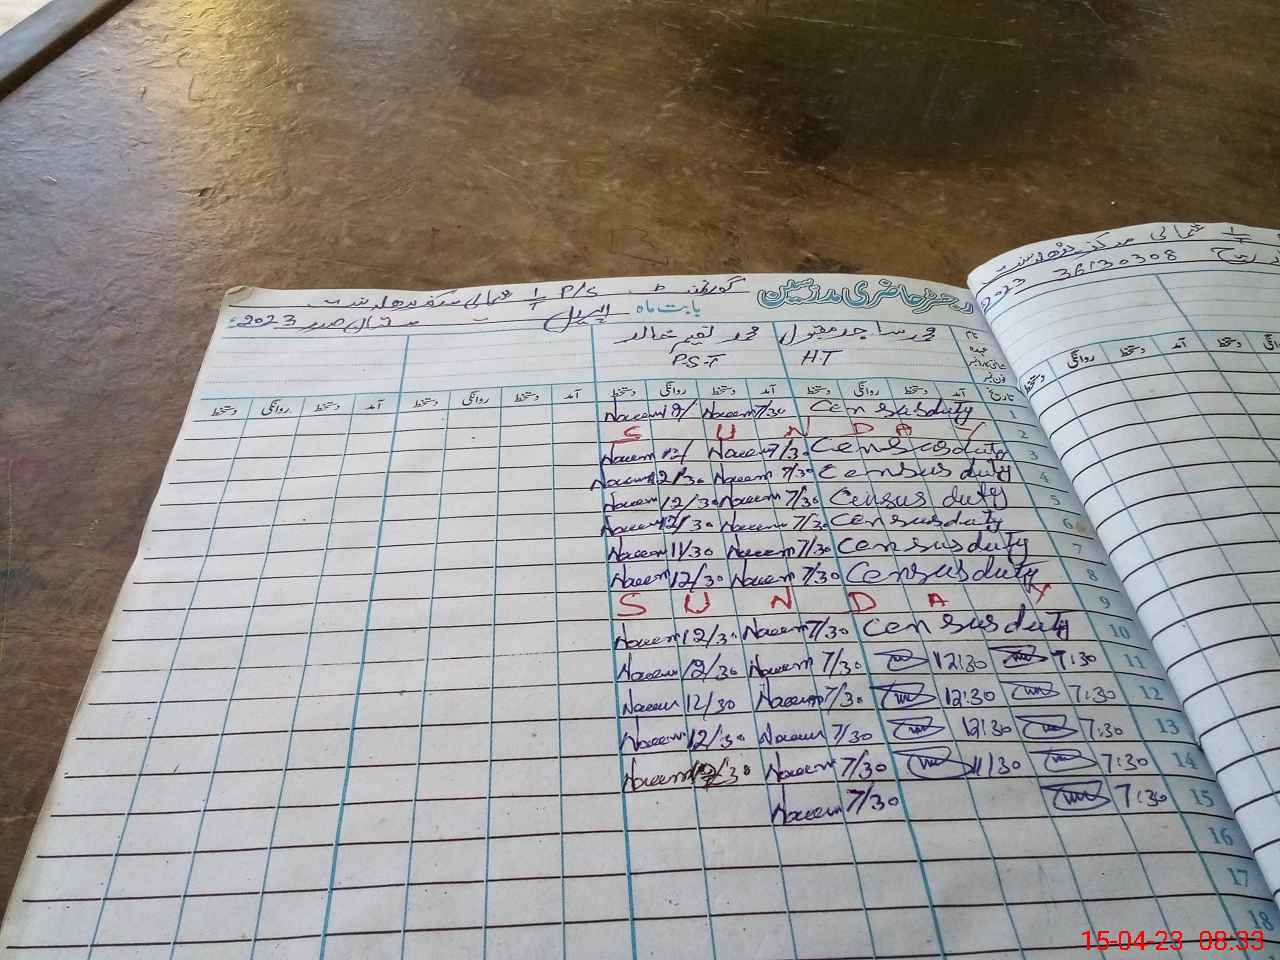 گورنمنٹ P/S 1/2 شمالی
رجسٹر حاضری مدرسین بابت ماہ اپریل 2023
نام محمد ساجد مقبول محمد نعیم خالد
عہدہ HT PST
تاریخ آمد دستخط روانگی دستخط آمد دستخط روانگی دستخط آمد دستخط روانگی دستخط آمد دستخط روانگی دستخط
1 Census duty 7/30 Naeem 12/ Naeem
2 S U N D A Y
3 Census duty 7/30 Naeem 12/ Naeem
4 Census duty 7/30 Naeem 12/30 Naeem
5 Census duty 7/30 Naeem 12/30 Naeem
6 Census duty 7/30 Naeem 12/30 Naeem
7 Census duty 7/30 Naeem 11/30 Naeem
8 Census duty 7/30 Naeem 12/30 Naeem
9 S U N D A Y
10 Census duty 7/30 Naeem 12/30 Naeem
11 7:30 12:30 7/30 Naeem 12/30 Naeem
12 7:30 12:30 7/30 Naeem 12/30 Naeem
13 7:30 12:30 7/30 Naeem 12/30 Naeem
14 7:30 11:30 7/30 Naeem Naeem
15 7:30 7/30 Naeem
16
17
18
شمالی مرکز
2023 36130308
دستخط روانگی دستخط آمد دستخط
15-04-23 08:33